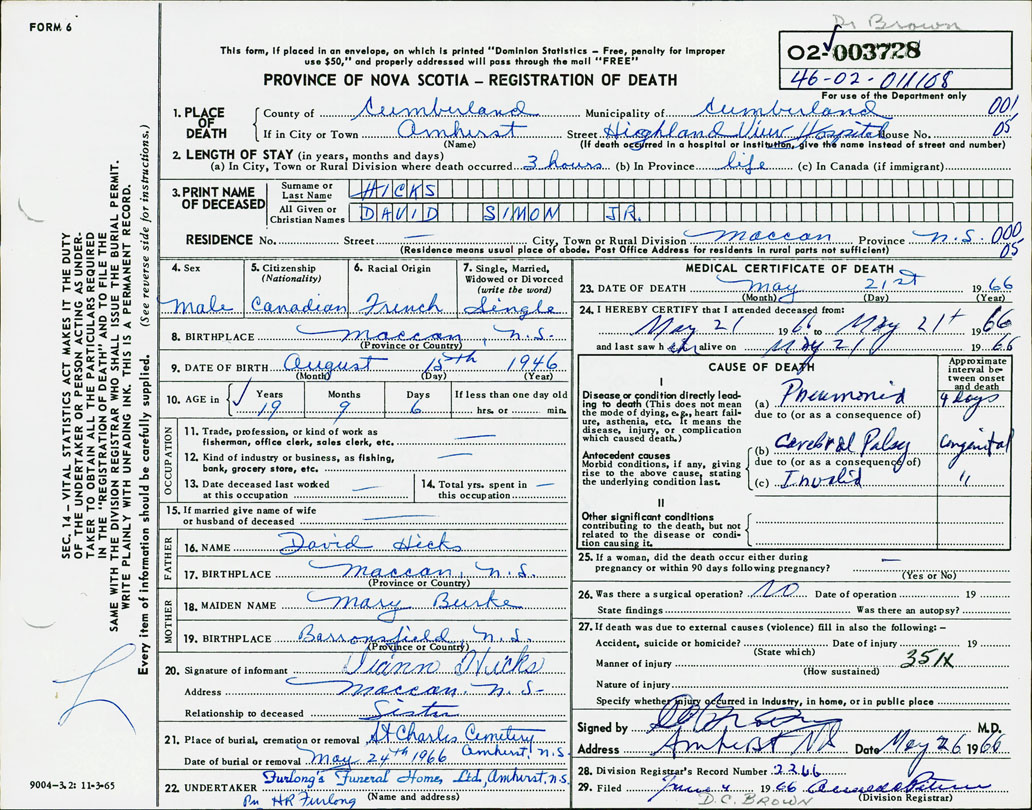 FORM 6
Dr Brown
This form, if placed in an envelope, on which is printed "Dominion Statistics – Free, penalty for improper
use $50," and properly addressed will pass through the mail "FREE"
02-003728
46-02-011108
For use of the Department only
PROVINCE OF NOVA SCOTIA – REGISTRATION OF DEATH
SEC. 14 – VITAL STATISTICS ACT MAKES IT THE DUTY
OF THE UNDERTAKER OR PERSON ACTING AS UNDER-
TAKER TO OBTAIN ALL THE PARTICULARS REQUIRED
IN THE "REGISTRATION OF DEATH" AND TO FILE THE
SAME WITH THE DIVISION REGISTRAR WHO SHALL ISSUE THE BURIAL PERMIT.
WRITE PLAINLY WITH UNFADING INK. THIS IS A PERMANENT RECORD.
Every item of information should be carefully supplied. (See reverse side for instructions.)
1. PLACE OF DEATH County of Cumberland Municipality of Cumberland 001
If in City or Town Amhurst Street Highland View Hospital House No. 05
(Name) (If death occurred in a hospital or institution, give the name instead of street and number)
2. LENGTH OF STAY (in years, months and days)
(a) In City, Town or Rural Division where death occurred 3 hours (b) In Province life (c) In Canada (if immigrant)
3. PRINT NAME OF DECEASED Surname or Last Name HICKS
All Given or Christian Names DAVID SIMON JR.
RESIDENCE No. Street — City, Town or Rural Division Maccan Province N.S. 000
(Residence means usual place of abode. Post Office Address for residents in rural parts not sufficient) 05
4. Sex 5. Citizenship (Nationality) 6. Racial Origin 7. Single, Married, Widowed or Divorced (write the word)
Male Canadian French Single
8. BIRTHPLACE Maccan, N.S.
(Province or Country)
9. DATE OF BIRTH August 15th 1946
(Month) (Day) (Year)
10. AGE in Years Months Days If less than one day old
19 9 6 hrs. or min.
OCCUPATION
11. Trade, profession, or kind of work as
fisherman, office clerk, sales clerk, etc. —
12. Kind of industry or business, as fishing,
bank, grocery store, etc. —
13. Date deceased last worked
at this occupation —
14. Total yrs. spent in
this occupation —
15. If married give name of wife
or husband of deceased —
FATHER
16. NAME David Hicks
17. BIRTHPLACE Maccan, N.S.
(Province or Country)
MOTHER
18. MAIDEN NAME Mary Burke
19. BIRTHPLACE Barronsfield, N.S.
(Province or Country)
20. Signature of informant Diann Hicks
Address Maccan. N.S.
Relationship to deceased Sister
21. Place of burial, cremation or removal St Charles Cemetery
Amhurst, N.S.
Date of burial or removal May 24th 1966
22. UNDERTAKER Furlong's Funeral Home, Ltd, Amhurst, N.S.
Per HR Furlong (Name and address)
MEDICAL CERTIFICATE OF DEATH
23. DATE OF DEATH May 21st 1966
(Month) (Day) (Year)
24. I HEREBY CERTIFY that I attended deceased from:
May 21 1966 to May 21st 1966
and last saw him alive on May 21 1966
CAUSE OF DEATH
Approximate interval between onset and death
I
Disease or condition directly lead-
ing to death (This does not mean
the mode of dying, e.g., heart fail-
ure, asthenia, etc. It means the
disease, injury, or complication
which caused death.)
(a) Pneumonia 4 Days
due to (or as a consequence of)
Antecedent causes
Morbid conditions, if any, giving
rise to the above cause, stating
the underlying condition last.
(b) Cerebral Palsy Congenital
due to (or as a consequence of)
(c) Invalid "
II
Other significant conditions
contributing to the death, but not
related to the disease or condi-
tion causing it.
25. If a woman, did the death occur either during
pregnancy or within 90 days following pregnancy? —
(Yes or No)
26. Was there a surgical operation? NO Date of operation 19
State findings Was there an autopsy?
27. If death was due to external causes (violence) fill in also the following:–
Accident, suicide or homicide? Date of injury 19
(State which)
Manner of injury 351X
(How sustained)
Nature of injury
Specify whether injury occurred in Industry, in home, or in public place
Signed by M.D.
Address Amherst NS Date May 26 1966
28. Division Registrar's Record Number 2266
29. Filed June 4 1966
D.C. BROWN (Division Registrar)
9004–3.2: 11-3-65